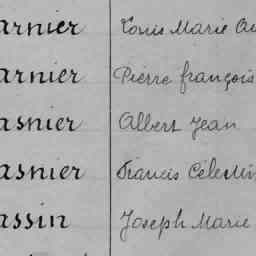 arnier Louis Marie Au
arnier Pierre françois
asnier Albert Jean
asnier Francis Célestin
assin Joseph Marie